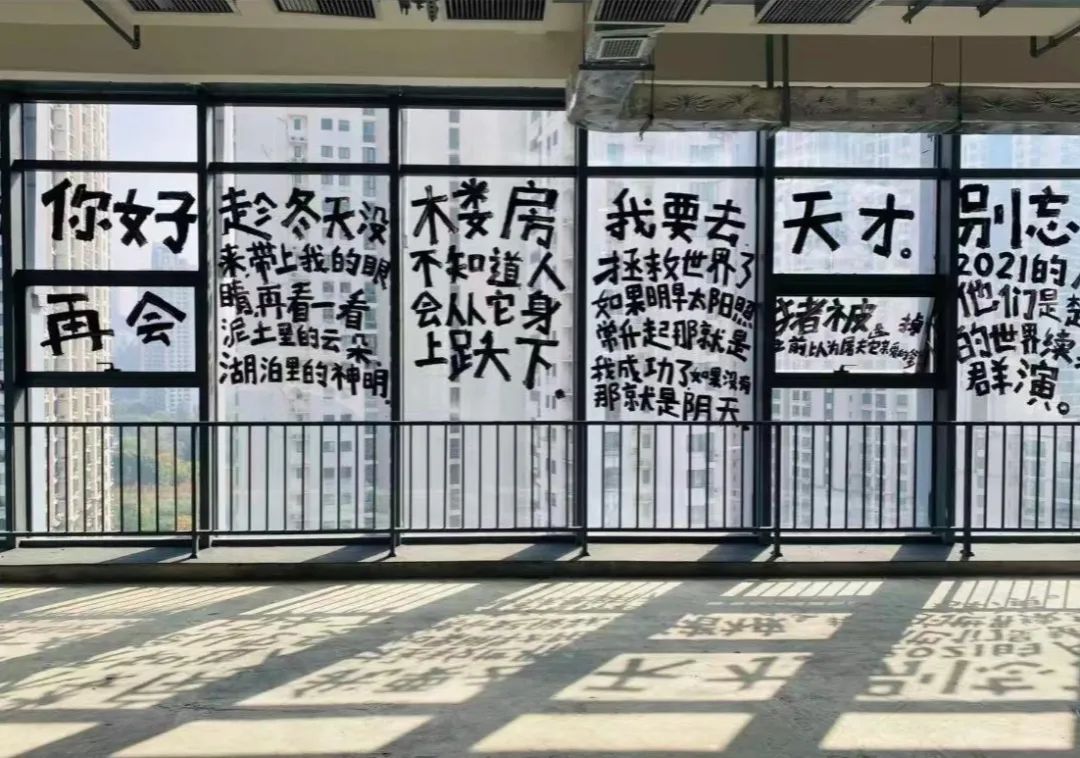 你好
再会
趁冬天没
来带上我的眼
睛,再看一看
泥土里的云朵,
湖泊里的神明.
木楼房
不知道人
会从它身
上跌下.
我要去
拯救世界了
如果明早太阳照
常升起那就是
我成功了如果没有
那就是阴天
天才。
猪被 掉
前以为屠夫它
别忘
2021的人
他们是楚
的世界续
群演。